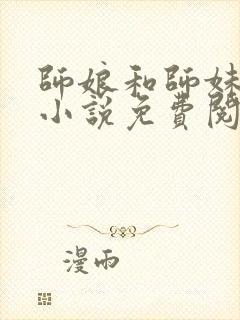 師娘和師妹
小説免費閱
漫雨